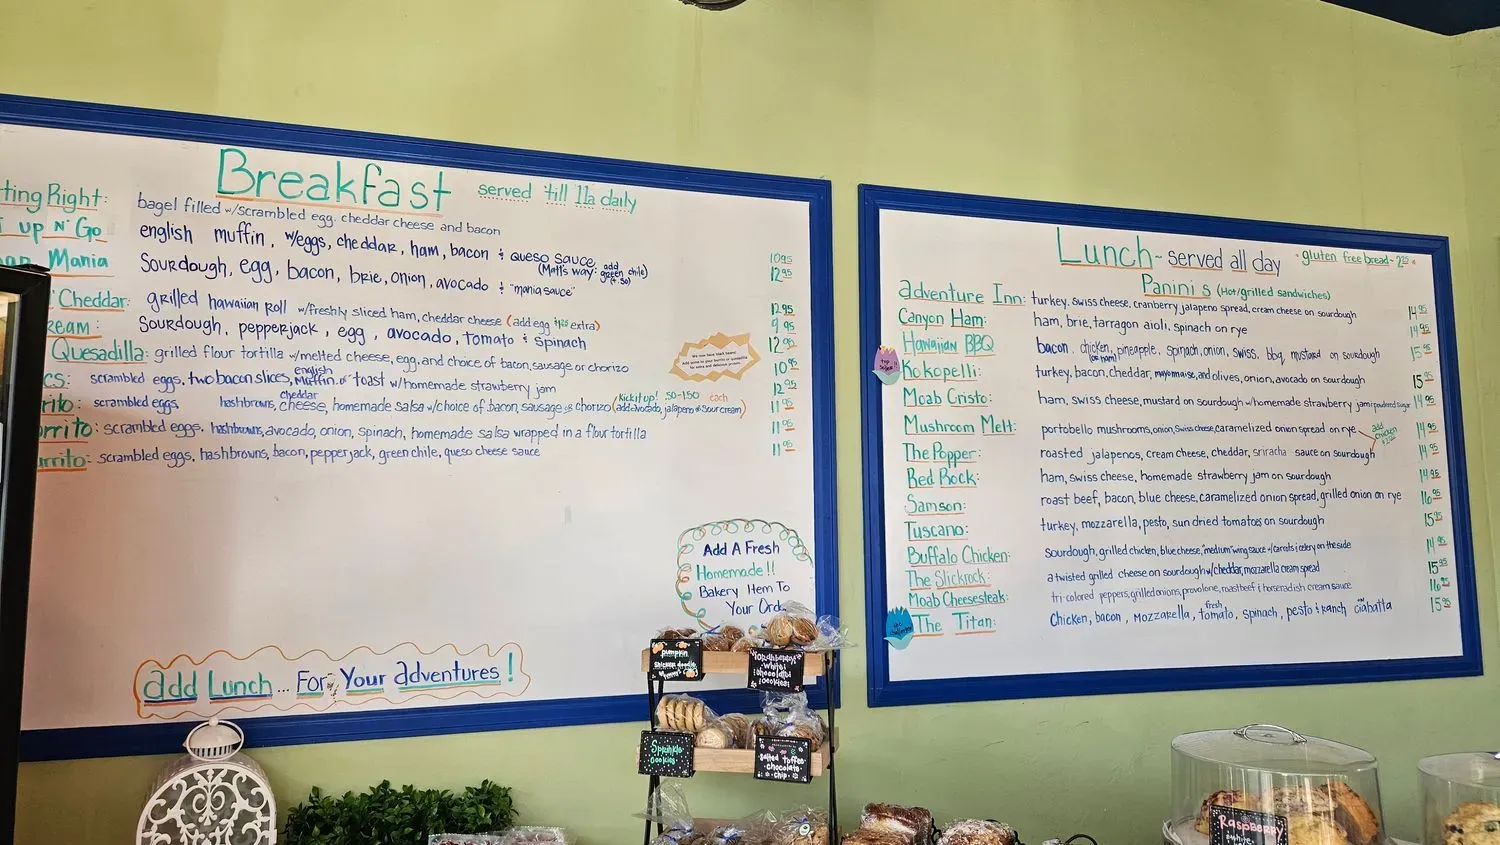 Breakfast served 'till 11a daily
ting Right: bagel filled w/scrambled egg. cheddar cheese and bacon 10.95
up N' Go english muffin, w/eggs, cheddar, ham, bacon & queso sauce 12.95
(Matt's way: add green chile) (+.50)
Mania Sourdough, egg, bacon, brie, onion, avocado & "mania sauce" 12.95
Cheddar: grilled hawaiian roll w/freshly sliced ham, cheddar cheese (add egg extra) 9.95
eam: Sourdough, pepperjack, egg, avocado, tomato & spinach 12.95
Quesadilla: grilled flour tortilla w/melted cheese, egg, and choice of bacon, sausage or chorizo 10.95
cs: scrambled eggs, two bacon slices, english muffin or toast w/homemade strawberry jam 12.95
Kick it up! .50-1.50 each
rito: scrambled eggs, hashbrowns, cheddar cheese, homemade salsa w/choice of bacon, sausage or chorizo (add avocado, jalapeno or sour cream) 11.95
rrito: scrambled eggs, hashbrowns, avocado, onion, spinach, homemade salsa wrapped in a flour tortilla 11.95
urrito: scrambled eggs, hashbrowns, bacon, pepper jack, green chile, queso cheese sauce 11.95
Add A Fresh
Homemade!!
Bakery Item To
Your Orde
Add Lunch... For Your Adventures!
Lunch - served all day
gluten free bread-
Panini's (Hot/grilled sandwiches)
Adventure Inn: turkey, swiss cheese, cranberry jalapeno spread, cream cheese on sourdough 14.95
Canyon Ham: ham, brie, tarragon aioli, spinach on rye 14.95
Hawaiian BBQ bacon, chicken, (or ham) pineapple, spinach, onion, swiss, bbq, mustard on sourdough 15.95
Kokopelli: turkey, bacon, cheddar, mayonnaise, and olives, onion, avocado on sourdough 15.95
Moab Cristo: ham, swiss cheese, mustard on sourdough w/homemade strawberry jam & powdered sugar 14.95
Mushroom Melt: portobello mushrooms, onion, swiss cheese, caramelized onion spread on rye 14.95
add chicken
The Popper: roasted jalapenos, cream cheese, cheddar, sriracha sauce on sourdough 14.95
Red Rock: ham, swiss cheese, homemade strawberry jam on sourdough 14.95
Samson: roast beef, bacon, blue cheese, caramelized onion spread, grilled onion on rye 16.95
Tuscano: turkey, mozzarella, pesto, sun dried tomatoes on sourdough 15.95
Buffalo Chicken: sourdough, grilled chicken, blue cheese, "medium" wing sauce w/carrots & celery on the side 14.95
The Slickrock: a twisted grilled cheese on sourdough w/cheddar, mozzarella cream spread 15.95
Moab Cheesesteak: tri-colored peppers, grilled onions, provolone, roast beef & horseradish cream sauce 16.95
The Titan: Chicken, bacon, mozzarella, fresh tomato, spinach, pesto & ranch on ciabatta 15.95
pumpkin
snickerdoodle
white
chocolate
cookies
Sprinkle
cookies
Salted toffee
chocolate
chip
Raspberry
white